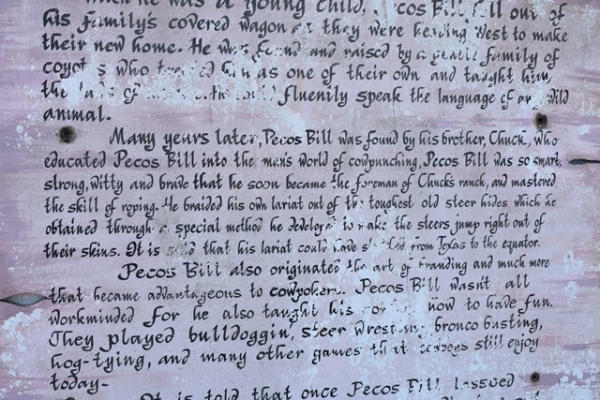 he was a young child, Pecos Bill fell out of
his family's covered wagon as they were heading West to make
their new home. He was found and raised by a family of
coyotes who treated him as one of their own and taught him
the of fluenily speak the language of any wild
animal.
Many years later, Pecos Bill was found by his brother, Chuck, who
educated Pecos Bill into the men's world of cowpunching, Pecos Bill was so smart,
strong, witty and brave that he soon became the foreman of Chuck's ranch, and mastered
the skill of roping. He braided his own lariat out of the toughest old steer hides which he
obtained through a special method he to make the steers jump right out of
their skins. It is said that his lariat could have from Texas to the equator.
Pecos Bill also originated the art of branding and much more
that became advantageous to cowpokers. Pecos Bill wasn't all
workminded for he also taught his how to have fun.
They played bulldoggin', steer bronco busting,
hog-tying, and many other games that cowboys still enjoy
today-
It is told that once Pecos Bill lassoed